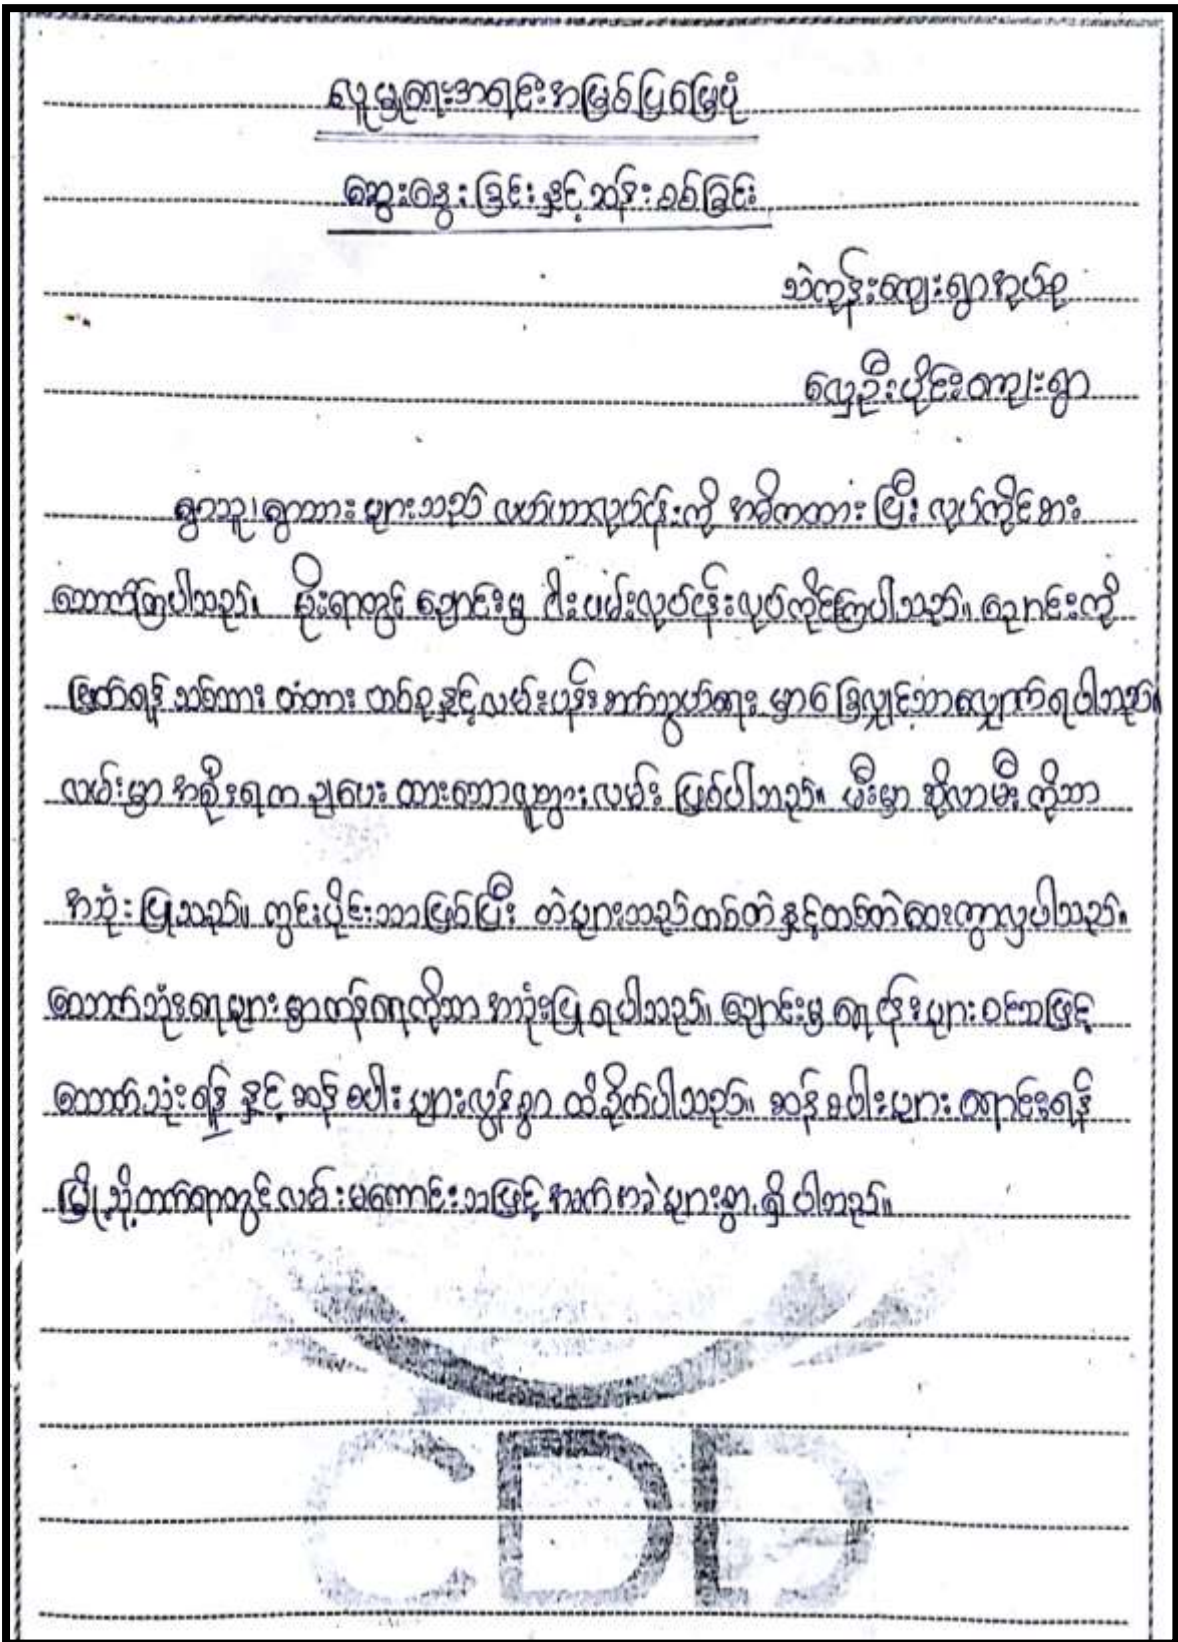 လူမှုရေးအရင်းအမြစ်ပြမြေပုံ
ဆွေးနွေးခြင်းနှင့်ဆန်းစစ်ခြင်း
သဲကုန်းကျေးရွာအုပ်စု
လှေဦးပိုင်းကျေးရွာ
ရွာသူ၊ရွာသားများသည် လယ်ယာလုပ်ငန်းကို အဓိကထားပြီး လုပ်ကိုင်စား
သောက်ကြပါသည်။ မိုးရာတွင် ချောင်းမှ ငါးဖမ်းလုပ်ငန်းလုပ်ကိုင်ကြပါသည်။ ချောင်းကို
ဖြတ်ရန် သစ်သား တံတား တစ်ခုနှင့်လမ်းပန်းဆက်သွယ်ရေး မှာ ခြေလျှင်သာလျှောက်ရပါသည်။
လမ်းမှာ အစိုးရက ချပေး ထားသောလူသွားလမ်း ဖြစ်ပါသည်။ မီးမှာ ဆိုလာမီး ကိုသာ
အသုံးပြုသည်။ ကွင်းပိုင်းသာဖြစ်ပြီး တဲများသည်တစ်တဲနှင့်တစ်တဲဝေးကွာလှပါသည်။
သောက်သုံးရေများမှာကန်ရေကိုသာ အသုံးပြုရပါသည်။ ချောင်းမှ ရေငန်းများ ဝင်သဖြင့်
သောက်သုံးရန် နှင့် ဆန် စပါး များလွန်စွာ ထိခိုက်ပါသည်။ ဆန်စပါးများ ရောင်းရန်
မြို့သို့တက်ရာတွင်လမ်းမကောင်းသဖြင့် အခက်အခဲများစွာ ရှိပါသည်။
CDD